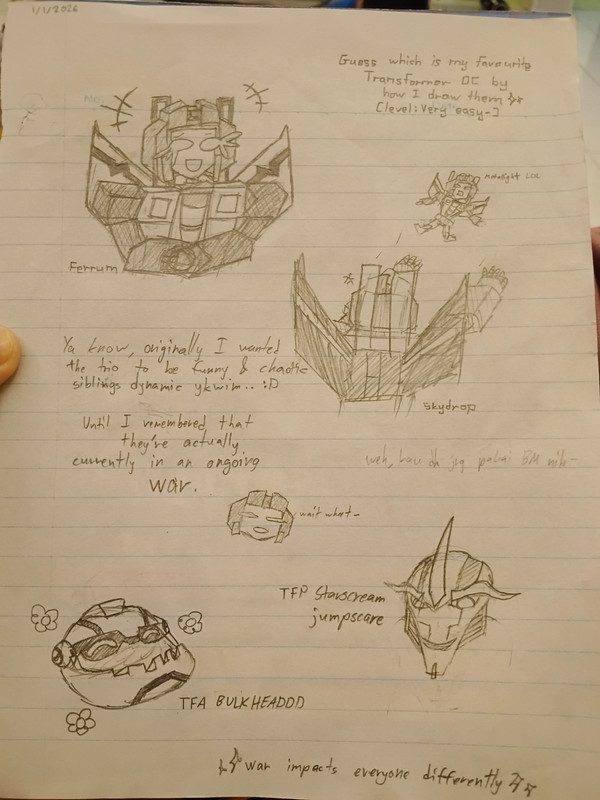 1/1/2026
Guess which is my favourite
Transformer OC by
how I draw them
[level: very easy-]
Ferrum
Skydrop
Ya know, originally I wanted
the trio to be funny & chaotic
siblings dynamic ykwim.. :D
Until I remembered that
they're actually
currently in an ongoing
war.
weh, kau dh jrg pakai BM nih-
wait what-
TFP Starscream
jumpscare
TFA BULKHEADDD
war impacts everyone differently